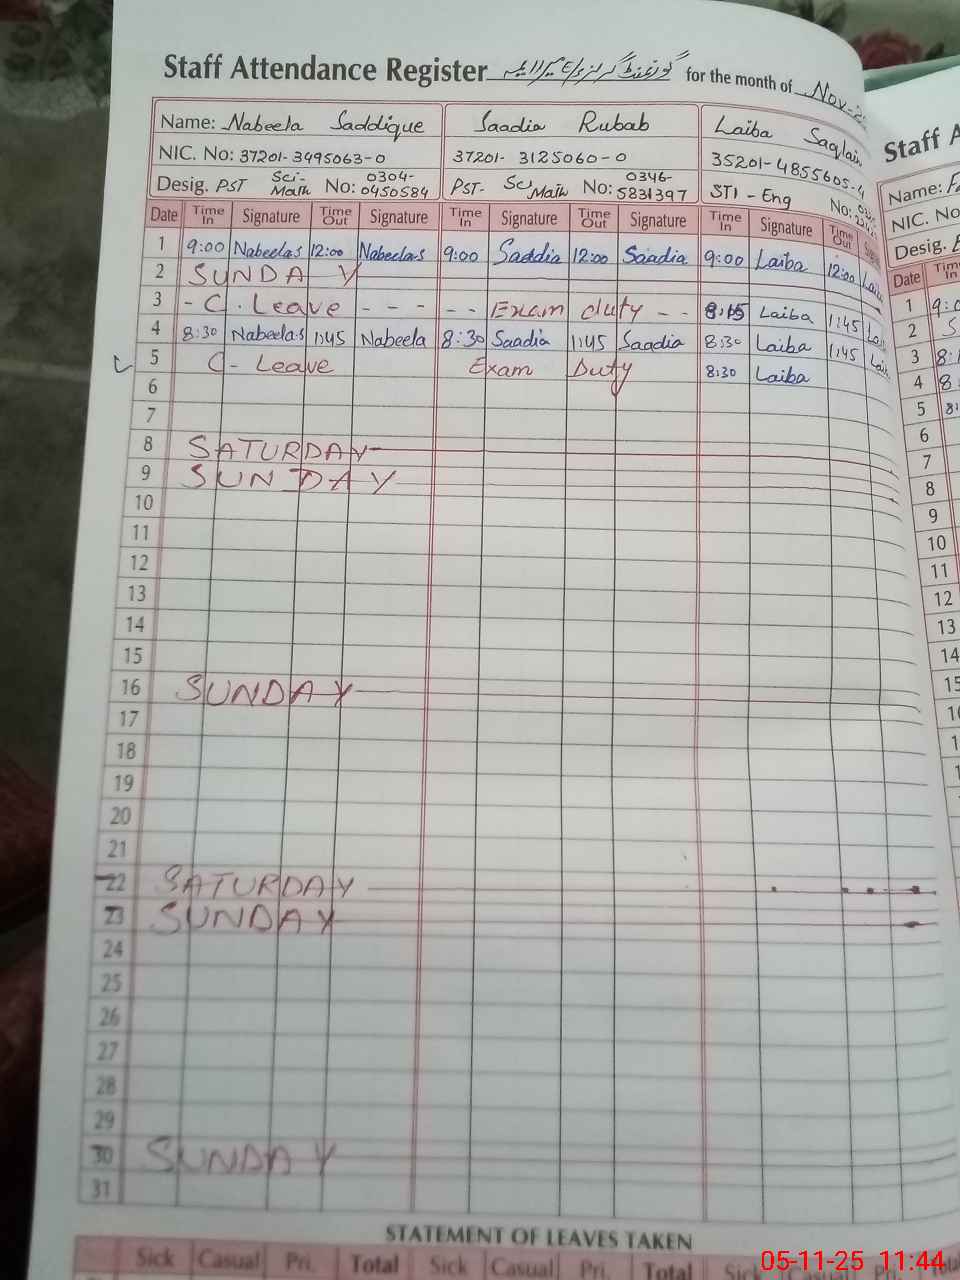 Staff Attendance Register گورنمنٹ گرلز for the month of Nov-2
Name: Nabeela Saddique Saadia Rubab Laiba Saqlain
NIC. No: 37201-3495063-0 37201-3125060-0 35201-4855605-4
Desig. PST Sci-Math No: 0304-0450584 PST- Sci Math No: 0346-5831397 STI - Eng No:
Date Time In Signature Time Out Signature Time In Signature Time Out Signature Time In Signature Time Out
1 9:00 Nabeela.s 12:00 Nabeela.s 9:00 Saddia 12:00 Saadia 9:00 Laiba 12:00 Lai
2 SUNDAY
3 - C. Leave - - - - - Exam duty - - 8:15 Laiba 1:45 Lai
4 8:30 Nabeela.s 1:45 Nabeela 8:30 Saadia 1:45 Saadia 8:30 Laiba 1:45 Lai
5 C - Leave Exam Duty 8:30 Laiba
6
7
8 SATURDAY
9 SUNDAY
10
11
12
13
14
15
16 SUNDAY
17
18
19
20
21
22 SATURDAY
23 SUNDAY
24
25
26
27
28
29
30 SUNDAY
31
STATEMENT OF LEAVES TAKEN
Sick Casual Pri. Total Sick Casual Pri. Total Sick Pri.
Staff A
Name: Fa
NIC. No
Desig.
Date Time In
1 9:0
2 S
3 8:
4 8
5 8:
6
7
8
9
10
11
12
13
14
15
16
05-11-25 11:44